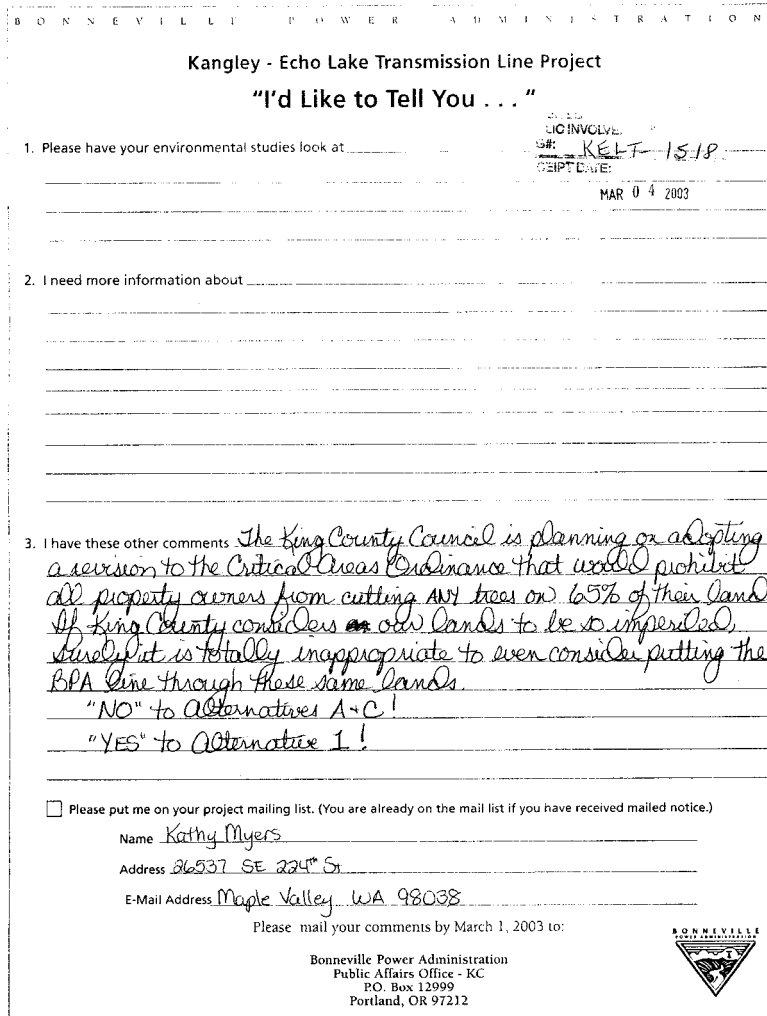 BONNEVILLE POWER ADMINISTRATION
Kangley - Echo Lake Transmission Line Project
"I'd Like to Tell You . . . "
LIC INVOLVE
G#: KELT-1518
CEIPT DATE:
MAR 04 2003
1. Please have your environmental studies look at
2. I need more information about
3. I have these other comments The King County Council is planning on adopting
a revision to the Critical Areas Ordinance that would prohibit
all property owners from cutting ANY trees on 65% of their land
If King County considers our lands to be so imperiled,
surely it is totally inappropriate to even consider putting the
BPA line through these same lands.
"NO" to Alternatives A+C!
"YES" to Alternative 1!
Please put me on your project mailing list. (You are already on the mail list if you have received mailed notice.)
Name Kathy Myers
Address 26537 SE 224th St
E-Mail Address Maple Valley WA 98038
Please mail your comments by March 1, 2003 to:
Bonneville Power Administration
Public Affairs Office - KC
P.O. Box 12999
Portland, OR 97212
BONNEVILLE
POWER ADMINISTRATION